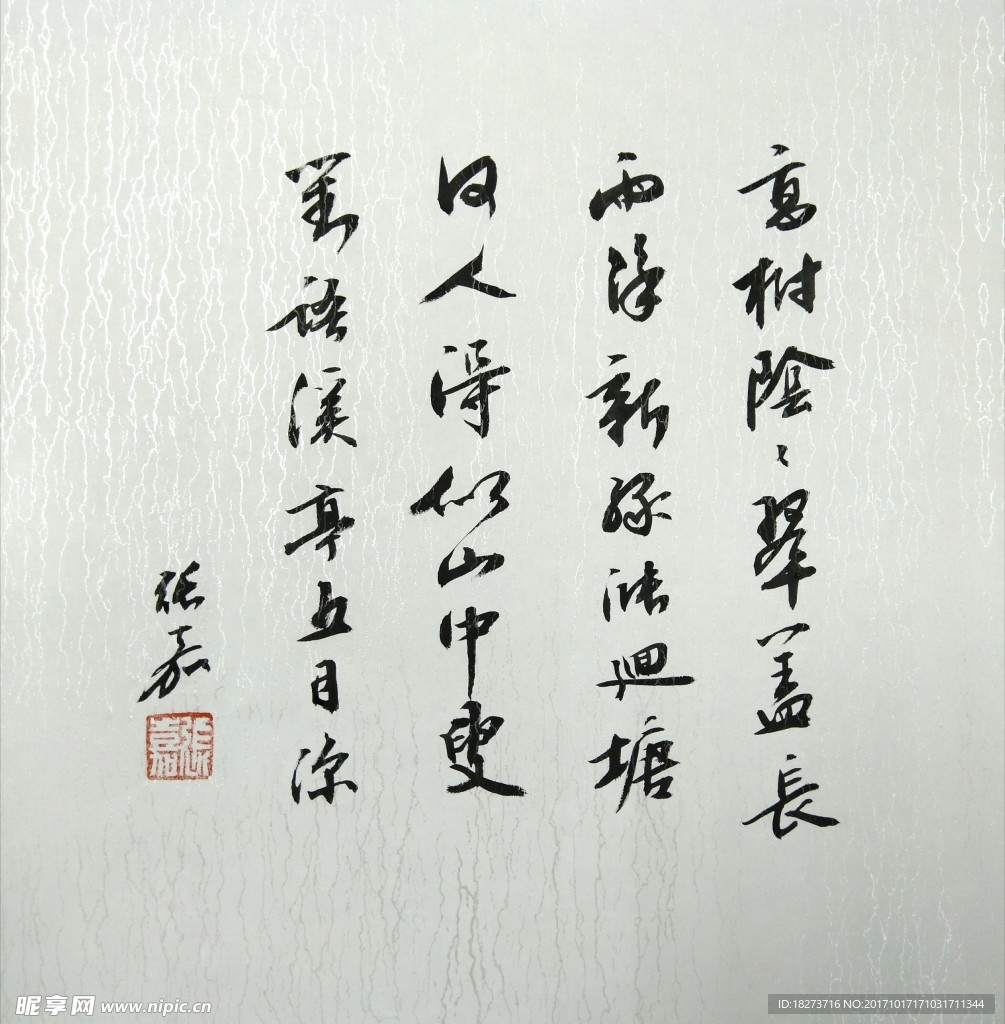 高樹陰〻翠盖長
雨餘新緑漲廻塘
何人得似山中叟
對語溪亭五月涼
張嘉
張嘉
昵享网 www.nipic.cn
ID:18273716 NO:20171017171031711344